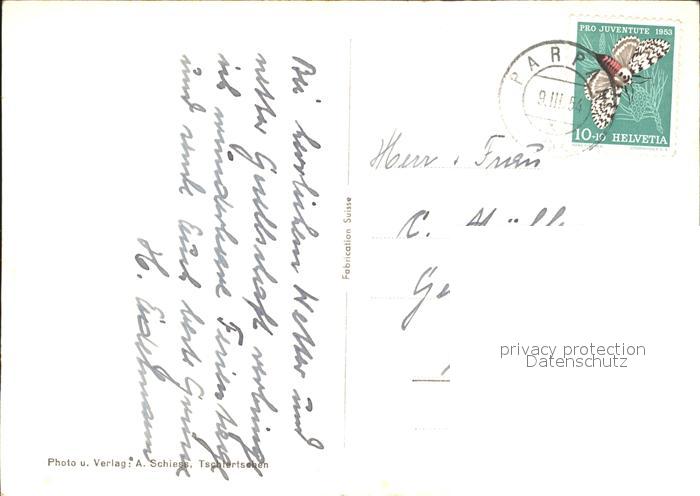 Bei herrlichem Wetter und
netter Gesellschaft verbringe
ich wunderbare Ferientage
und sende Euch herzl. Grüsse
H. Eidelmann
Photo u. Verlag: A. Schiess, Tschiertschen
Fabrication Suisse
PRO JUVENTUTE 1953
10+10 HELVETIA
PARP
9.III.54
Herr u. Frau
privacy protection
Datenschutz